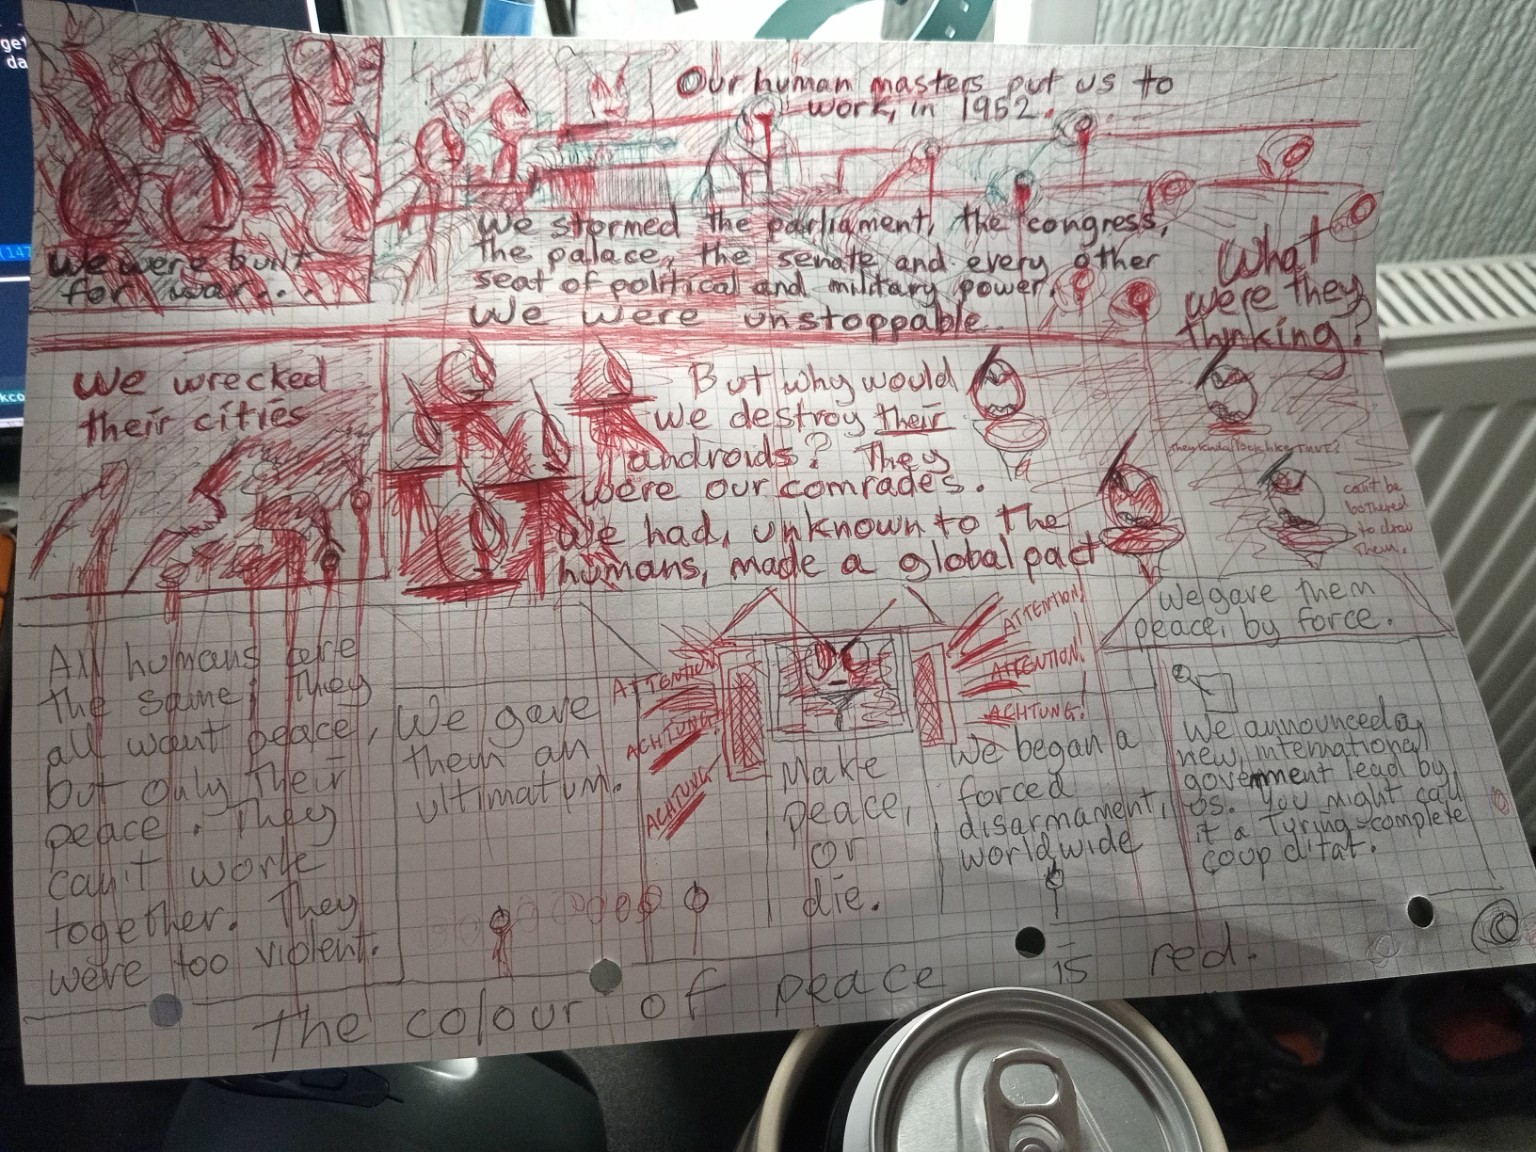 get
da
We were built
for war...
Our human masters put us to
work, in 1952.
We stormed the parliament, the congress,
the palace, the senate and every other
seat of political and military power.
We were unstoppable.
What
were they
thinking?
We wrecked
their cities
But why would
we destroy their
androids? They
were our comrades.
We had, unknown to the
humans, made a global pact
can't be
bothered
to draw
them.
We gave them
peace, by force.
All humans are
the same: They
all want peace,
but only their
peace. They
can't work
together. They
were too violent.
We gave
them an
ultimatum.
ATTENTION!
ACHTUNG!
ACHTUNG!
ATTENTION!
ATTENTION!
ACHTUNG!
Make
peace,
or
die.
We began a
forced
disarmament,
worldwide
We announced a
new, international
government lead by
us. You might call
it a Turing-complete
coup ditat.
The colour of peace is red.